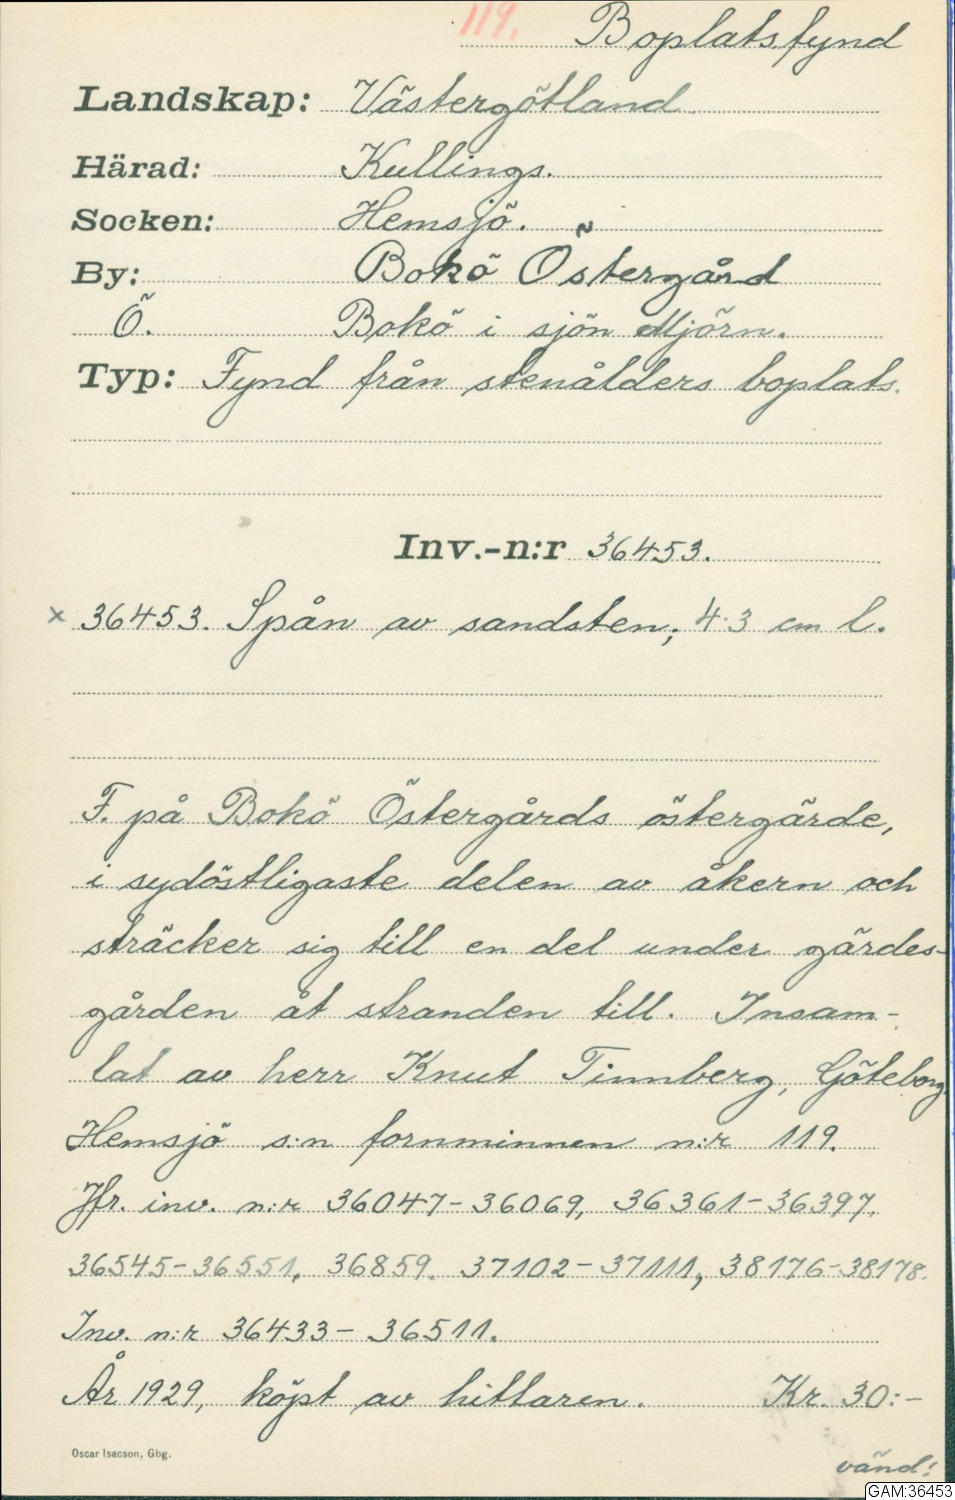 119. Boplatsfynd
Landskap: Västergötland
Härad: Kullings.
Socken: Hemsjö.
By: Bokö Östergård
Ö. Bokö i sjön Mjörn.
Typ: Fynd från stenålders boplats.
Inv.-n:r 36453.
× 36453. Spån av sandsten; 4.3 cm l.
F. på Bokö Östergårds östergärde,
i sydöstligaste delen av åkern och
sträcker sig till en del under gärdes-
gården åt stranden till. Insam-
lat av herr Knut Tinnberg, Göteborg.
Hemsjö s:n fornminnen n:r 119.
Jfr. inv. n:r 36047-36069, 36361-36397,
36545-36551, 36859. 37102-37111, 38176-38178.
Inv. n:r 36433-36511.
År 1929, köpt av hittaren. Kr. 30:-
Oscar Isacson, Gbg.
vänd!
GAM:36453